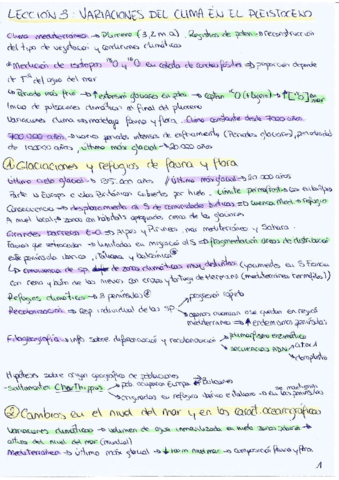 LECCIÓN 3: VARIACIONES DEL CLIMA EN EL PLEISTOCENO
Clima mediterráneo → Plioceno (3,2 m.a). Registros de polen → reconstrucción
del tipo de vegetación y condiciones climáticas
*Medición de isótopos ¹⁸O y ¹⁶O en calcita de → proporción depende
de Tª del agua del mar
*Periodo más frío → ↑ extensión glaciares en polos → captan ¹⁶O (+ligero) → ↑[¹⁸O] en mar
Inicio de pulsaciones climáticas al final del plioceno
Variaciones clima → modelaje fauna y flora. Clima desde 7000 años
900.000 años → varios periodos intensos de enfriamiento (Periodos glaciares), periodicidad
de 100000 años, último máx. glacial → 20.000 años
① Glaciaciones y refugios de fauna y flora
Último ciclo glacial → 135.000 años / Último máx. glacial → 20.000 años
Parte N Europa e islas Británicas cubiertas por hielo. Límite permafrost
Consecuencia → desplazamiento al S de comunidades bióticas → refugio
A nivel local → zonas con hábitats apropiados cerca de los glaciares
Grandes barreras E-O → Alpes y Pirineos, mar mediterráneo y Sahara.
Fauna que retrocedió → limitada su migración al S → fragmentación áreas de distribución
en península ibérica, italiana y balcánica
↳ convivencia de sp. de zonas climáticas muy distintas (yacimientes en S Francia
con reno y asno de las nieves con erizos y tortuga de Hermann (mediterráneo termófilos))
Refugios climáticos → 3 penínsulas
Recolonización → Resp individual de las sp → progresión rápida
→ apenas avanzan o se quedan en región
mediterránea → ↑ endemismos penínsulas
Filogeografía → info sobre diferenciación y recolonización → polimorfismo enzimático
→ secuencias ADN → citocr
→ cloroplasto
Hipótesis sobre origen geográfico de poblaciones
-saltamontes Chorthippus → pob. ocuparon Europa → Balcanes
→ originarias en refugios ibérico e italiano → se mantienen en las penínsulas
② Cambios en el nivel del mar y en las caract. oceanográficas
Variaciones climáticas → volumen de agua inmovilizada en hielo zonas polares →
altura del nivel del mar (mundial)
Mediterráneo → último máx glacial → ↓ nivel mar → composición fauna y flora
1